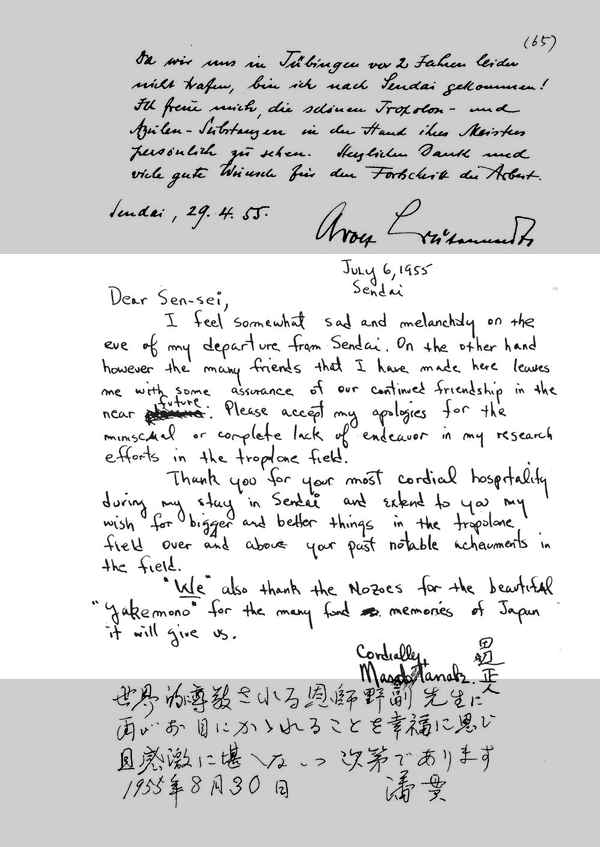 (65)
Da wir uns in Tübingen vor 2 Jahren leider
nicht trafen, bin ich nach Sendai gekommen!
Ich freue mich, die schönen Tropolon- und
Azulen-Substanzen in der Hand ihres Meisters
persönlich zu sehen. Herzlichen Dank und
viele gute Wünsche für den Fortschritt der Arbeit.
Sendai, 29.4.55.
July 6, 1955
Sendai
Dear Sen-sei,
I feel somewhat sad and melancholy on the
eve of my departure from Sendai. On the other hand
however the many friends that I have made here leaves
me with some assurance of our continued friendship in the
near future. Please accept my apologies for the
or complete lack of endeavor in my research
efforts in the tropolone field.
Thank you for your most cordial hospitality
during my stay in Sendai and extend to you my
wish for bigger and better things in the tropolone
field over and above your past notable in
the field.
"We" also thank the Nozoes for the beautiful
"yakemono" for the many fond memories of Japan
it will give us.
Cordially,
Tanabe
田辺正人
世界的尊敬される恩師野副先生に
再びお目にかゝれることを幸福に思ひ
且感激に堪へない次第であります
1955年8月30日 潘貫